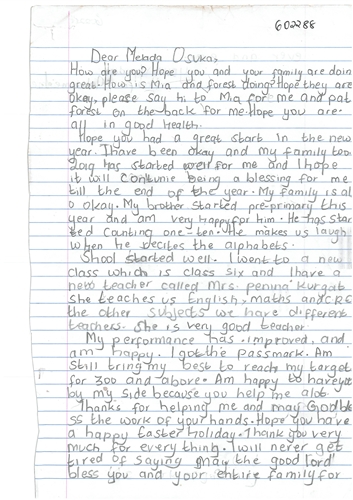 602288
Dear Melada Osuka,
How are you? Hope you and your family are doin
great. How is Mia and forest doing? Hope they are
okay, please say hi to Mia for me and pat
forest on the back for me. Hope you are
all in good health.
Hope you had a great start in the new
year. I have been okay and my family too
2019 has started well for me and I hope
it will contunie being a blessing for me
till the end of the year. My family is al
o okay. My brother started pre-primary this
year and am very happy for him. He has star
ted counting one-ten. He makes us laugh
when he recites the alphabets.
Shool started well. I went to a new
class which is class six and I have a
new teacher called Mrs. Penina Kurgat
she teaches us English, maths and CRE
the other subjects we have different
teachers. She is very good teacher.
My performance has improved, and
am happy. I got the passmark. Am
still tring my best to reach my target
for 300 and above. Am happy to have you
by my side because you help me alot
Thanks for helping me and may God ble
ss the work of your hands. Hope you have
a happy Easter holiday. Thank you very
much for every thing. I will never get
tired of saying may the good lord
bless you and your entire family for